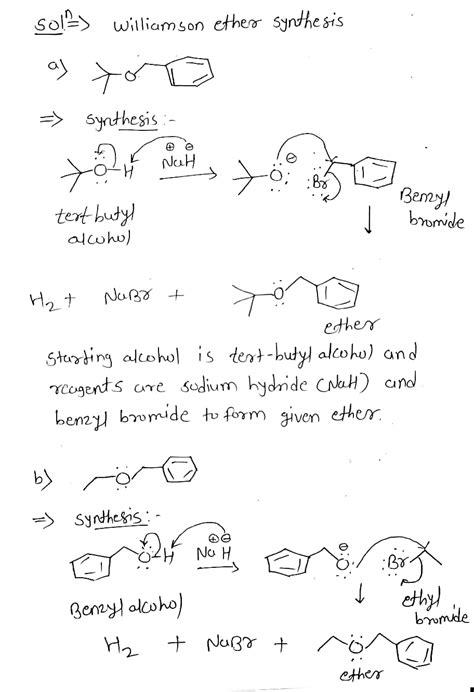 Solⁿ ⇒ Williamson ether synthesis
a)
O
⇒ Synthesis :-
O-H
⊕ ⊖
NaH
⊖
O
Br
Benzyl
bromide
tert-butyl
alcohol
H₂ + NaBr +
O
ether
Starting alcohol is tert-butyl alcohol and
reagents are sodium hydride (NaH) and
benzyl bromide to form given ether.
b)
O
⇒ Synthesis :-
O-H
⊕⊖
Na H
⊖
O
Br
Benzyl alcohol
ethyl
bromide
H₂ + NaBr +
O
ether